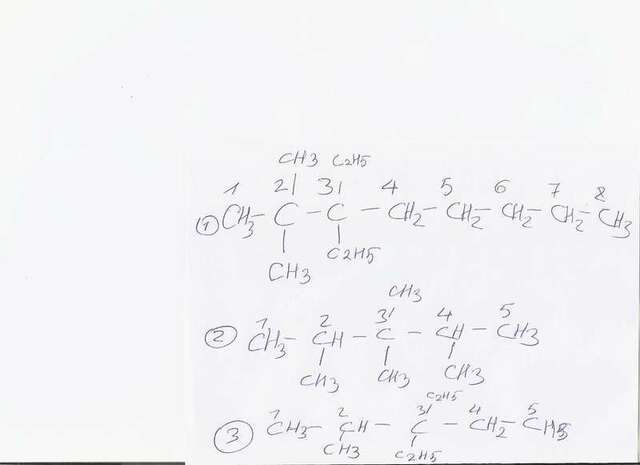 CH3 C2H5
1 2 3 4 5 6 7 8
① CH3 - C - C - CH2 - CH2 - CH2 - CH2 - CH3
C2H5
CH3
CH3
1 2 3 4 5
② CH3 - CH - C - CH - CH3
CH3 CH3 CH3
C2H5
1 2 3 4 5
③ CH3 - CH - C - CH2 - CH3
CH3 C2H5